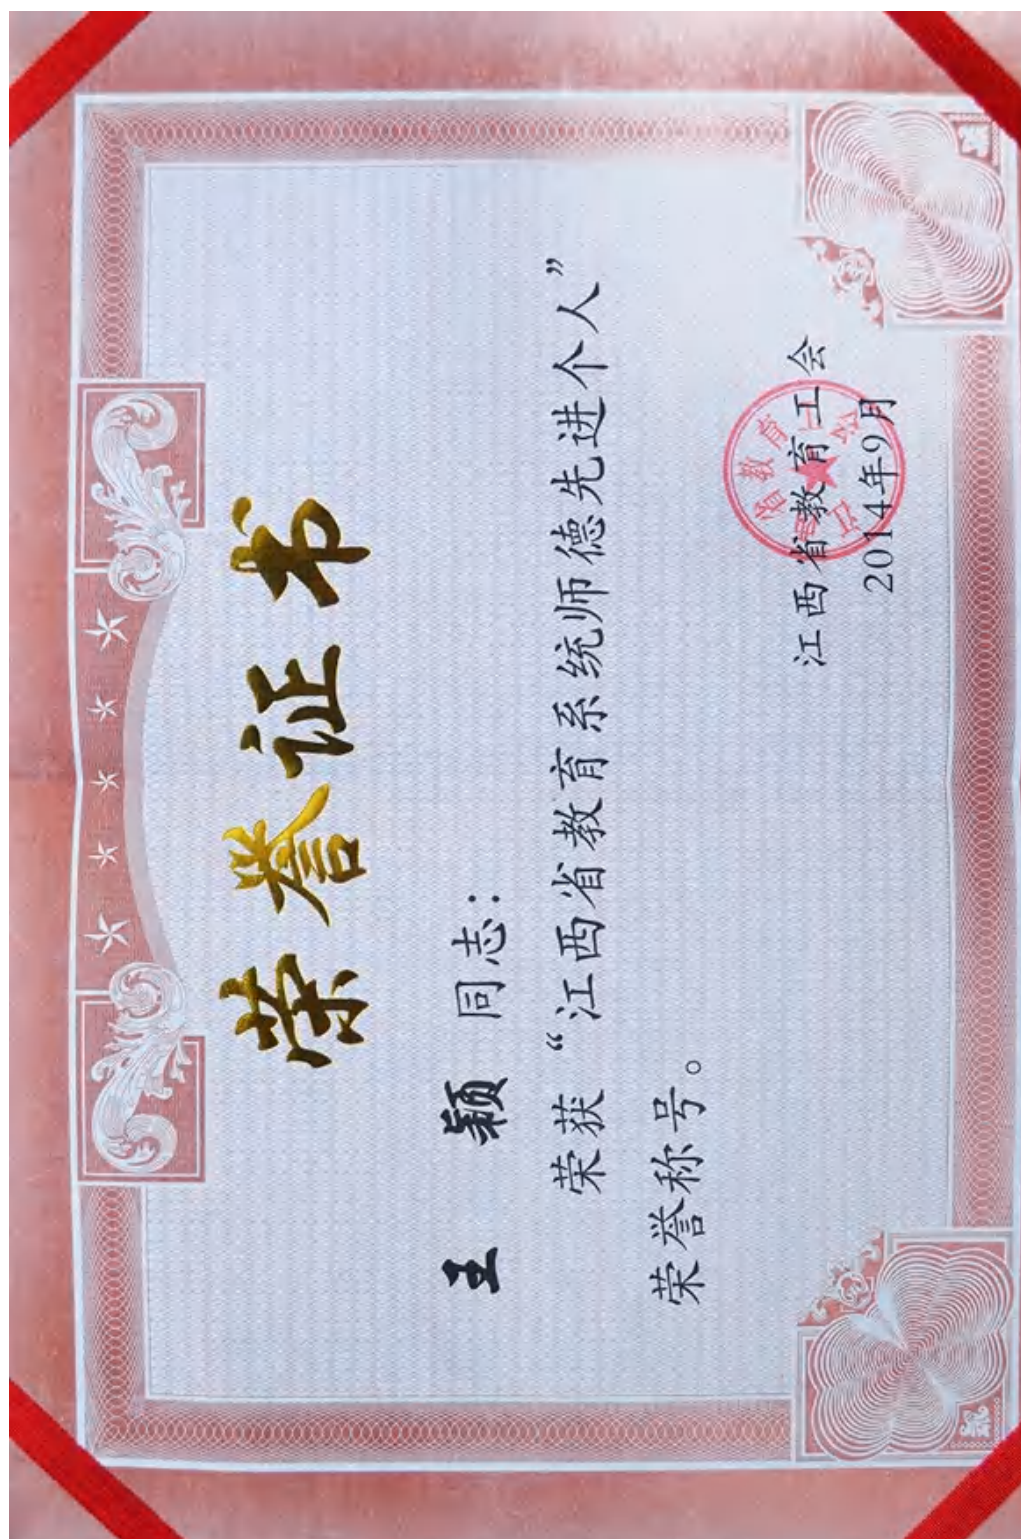 荣誉证书
王颖同志:
荣获“江西省教育系统师德先进个人”
荣誉称号。
江西省教育工会
2014年9月
江西省教育工会